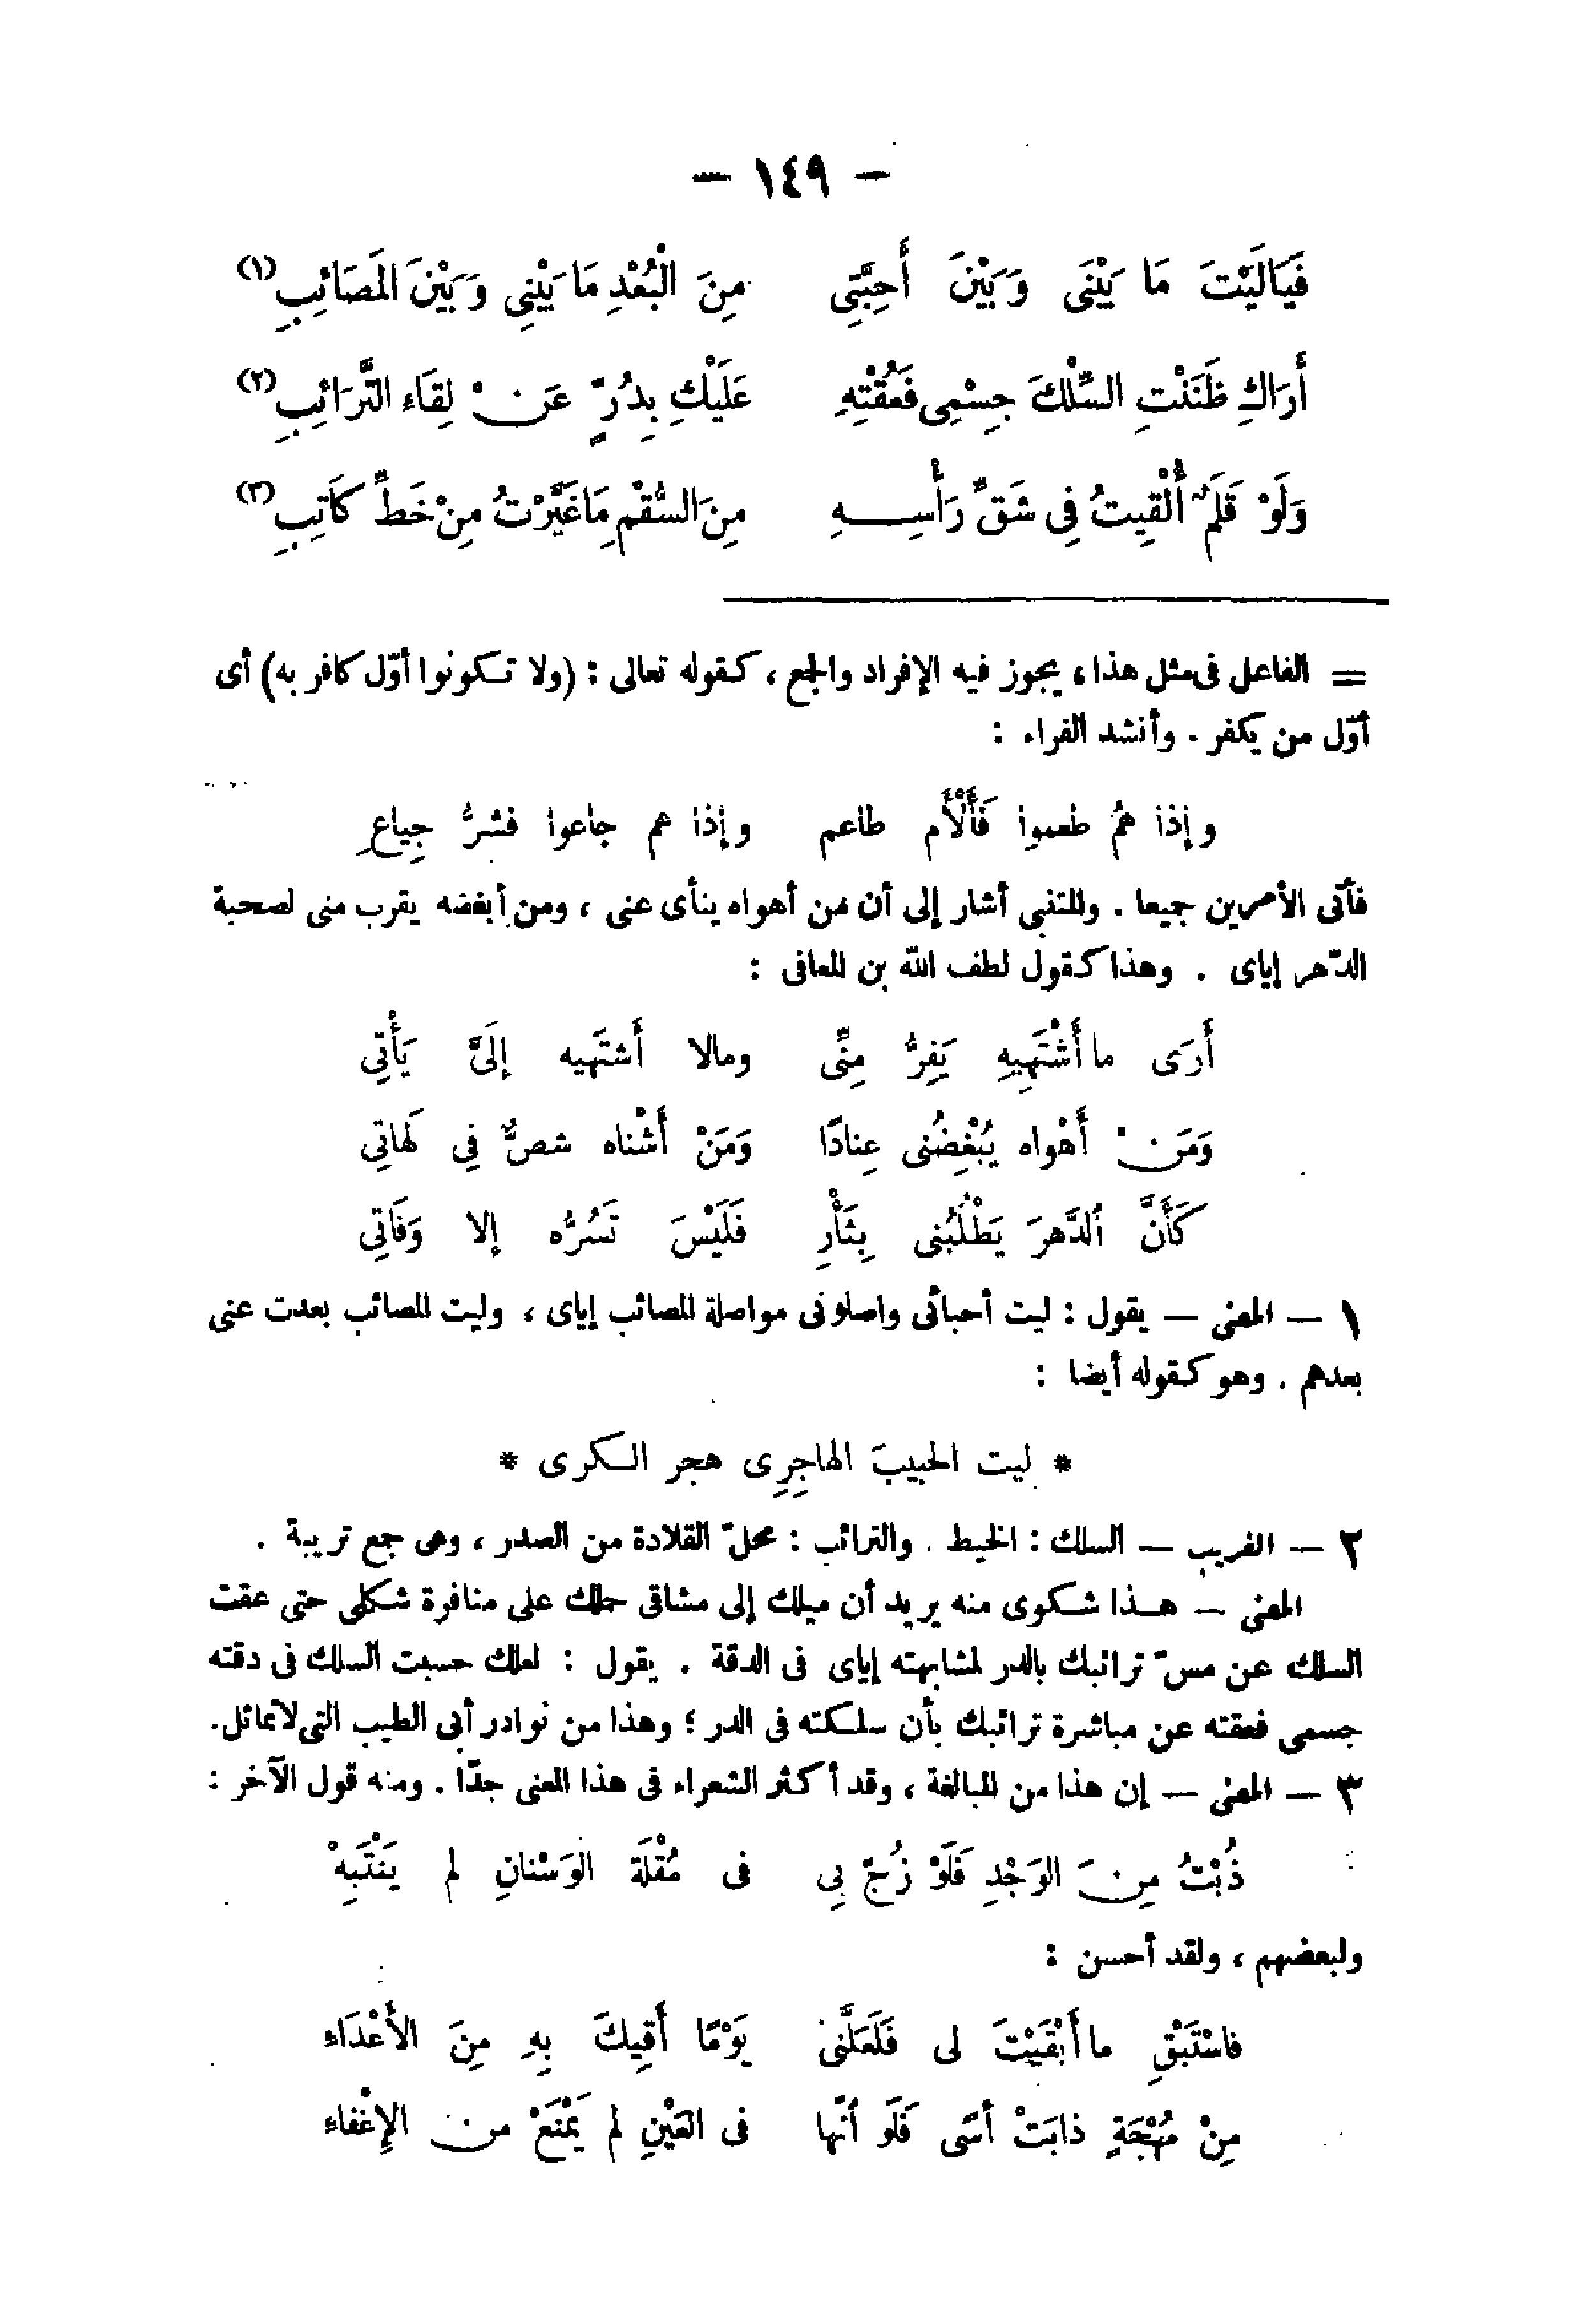 — ١٤٩ —
فَيَالَيْتَ مَا بَيْنِى وَبَيْنَ أَحِبَّتِى مِنَ الْبُعْدِ مَا بَيْنِى وَبَيْنَ المَصَائِبِ (١)
أَرَاكِ ظَنَنْتِ السِّلْكَ جِسْمِى فَعُقْتِهِ عَلَيْكِ بِدُرٍّ عَنْ لِقَاءِ التَّرَائِبِ (٢)
وَلَوْ قَلَمٌ أُلْقِيتُ فِى شَقِّ رَأْسِهِ مِنَ السُّقْمِ مَا غَيَّرْتُ مِنْ خَطِّ كَاتِبِ (٣)
= الفاعل فى مثل هذا، يجوز فيه الإفراد والجمع، كقوله تعالى : (ولا تكونوا أوّل كافر به) أى
أوّل من يكفر . وأنشد الفراء :
وإذا همُ طعموا فَأَلْأَم طاعم وإذا هم جاعوا فشرُّ جِياعِ
فأتى الأمرين جميعا . والمتنبى أشار إلى أن من أهواه ينأى عنى ، ومن أبغضه يقرب منى لصحبة
الدّهر إياى . وهذا كقول لطف الله بن المعافى :
أَرَى ما أَشْتَهِيهِ يَفِرُّ مِنِّى ومالا أَشتَهيه إلَىَّ يَأْتِى
وَمَنْ أَهْواه يُبْغِضُنى عِنادًا وَمَنْ أَشْناه شصٌّ فِى لَهاتِى
كَأَنَّ ٱلدَّهرَ يَطْلُبُنى بِثَأْرٍ فَلَيْسَ تَسُرُّه إلا وَفَاتِى
١ — المعنى — يقول : ليت أحبائى واصلونى مواصلة المصائب إياى ، وليت المصائب بعدت عنى
بعدهم . وهو كقوله أيضا :
* ليت الحبيبَ الهاجِرِى هجر الكرى *
٢ — الغريب — السلك : الخيط . والترائب : محلّ القلادة من الصدر ، وهى جمع تريبة .
المعنى — هذا شكوى منه يريد أن ميلك إلى مشاقى حملك على منافرة شكلى حتى عقت
السلك عن مسّ ترائبك بالدر لمشابهته إياى فى الدقة . يقول : لعلك حسبت السلك فى دقته
جسمى فعقته عن مباشرة ترائبك بأن سلكته فى الدر ؛ وهذا من نوادر أبى الطيب التى لاتماثل.
٣ — المعنى — إن هذا من المبالغة ، وقد أكثر الشعراء فى هذا المعنى جدّا . ومنه قول الآخر :
ذُبْتُ مِنَ الوَجْدِ فَلَوْ زُجّ بِى فى مُقْلَة الوَسْنانِ لم يَنْتَبِهْ
ولبعضهم ، ولقد أحسن :
فاسْتَبْقِ ما أَبْقَيْتَ لى فَلَعَلَّنى يَوْمًا أَقِيكَ بِهِ مِنَ الأَعْدَاءِ
مِنْ مُهْجَةٍ ذابَتْ أَسًى فَلَو ٱنّها فى العَيْنِ لم يَمْنَعْ من الإِغْفاءِ